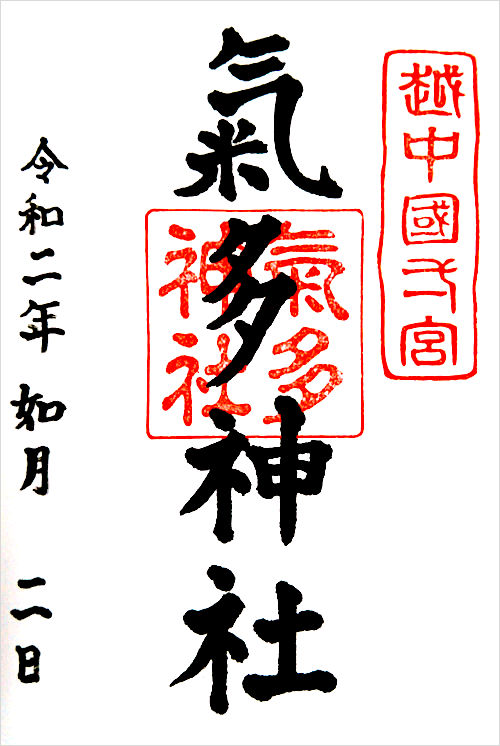 越中國一宮
氣多神社
氣多
神社
令和二年 如月 二日